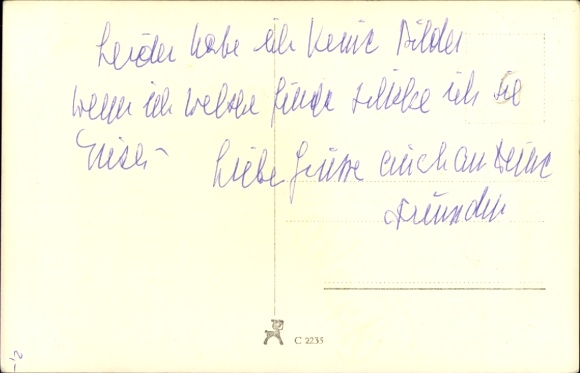 Leider habe ich keine Bilder
wenn ich welche finde schicke ich sie
Liebe Grüsse auch an Deine
Freundin
C 2235
2,-